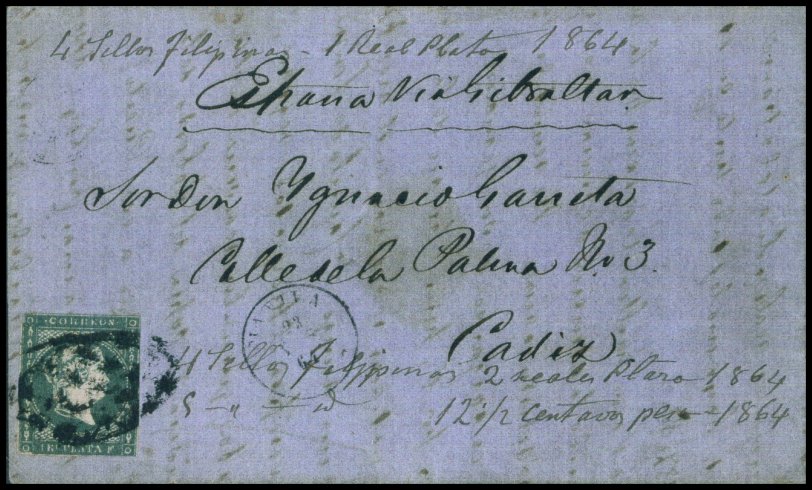 4 Sellos Filipinas - 1 Real Plata 1864
España Via Gibraltar
Sor Don Ygnacio
Calle de la Palma No 3.
Cadiz
4 Sellos Filipinas 2 reales Plata 1864
5 - " - id 12 1/2 centavos peso - 1864
MANILA
CORREOS
1 RL PLATA F.